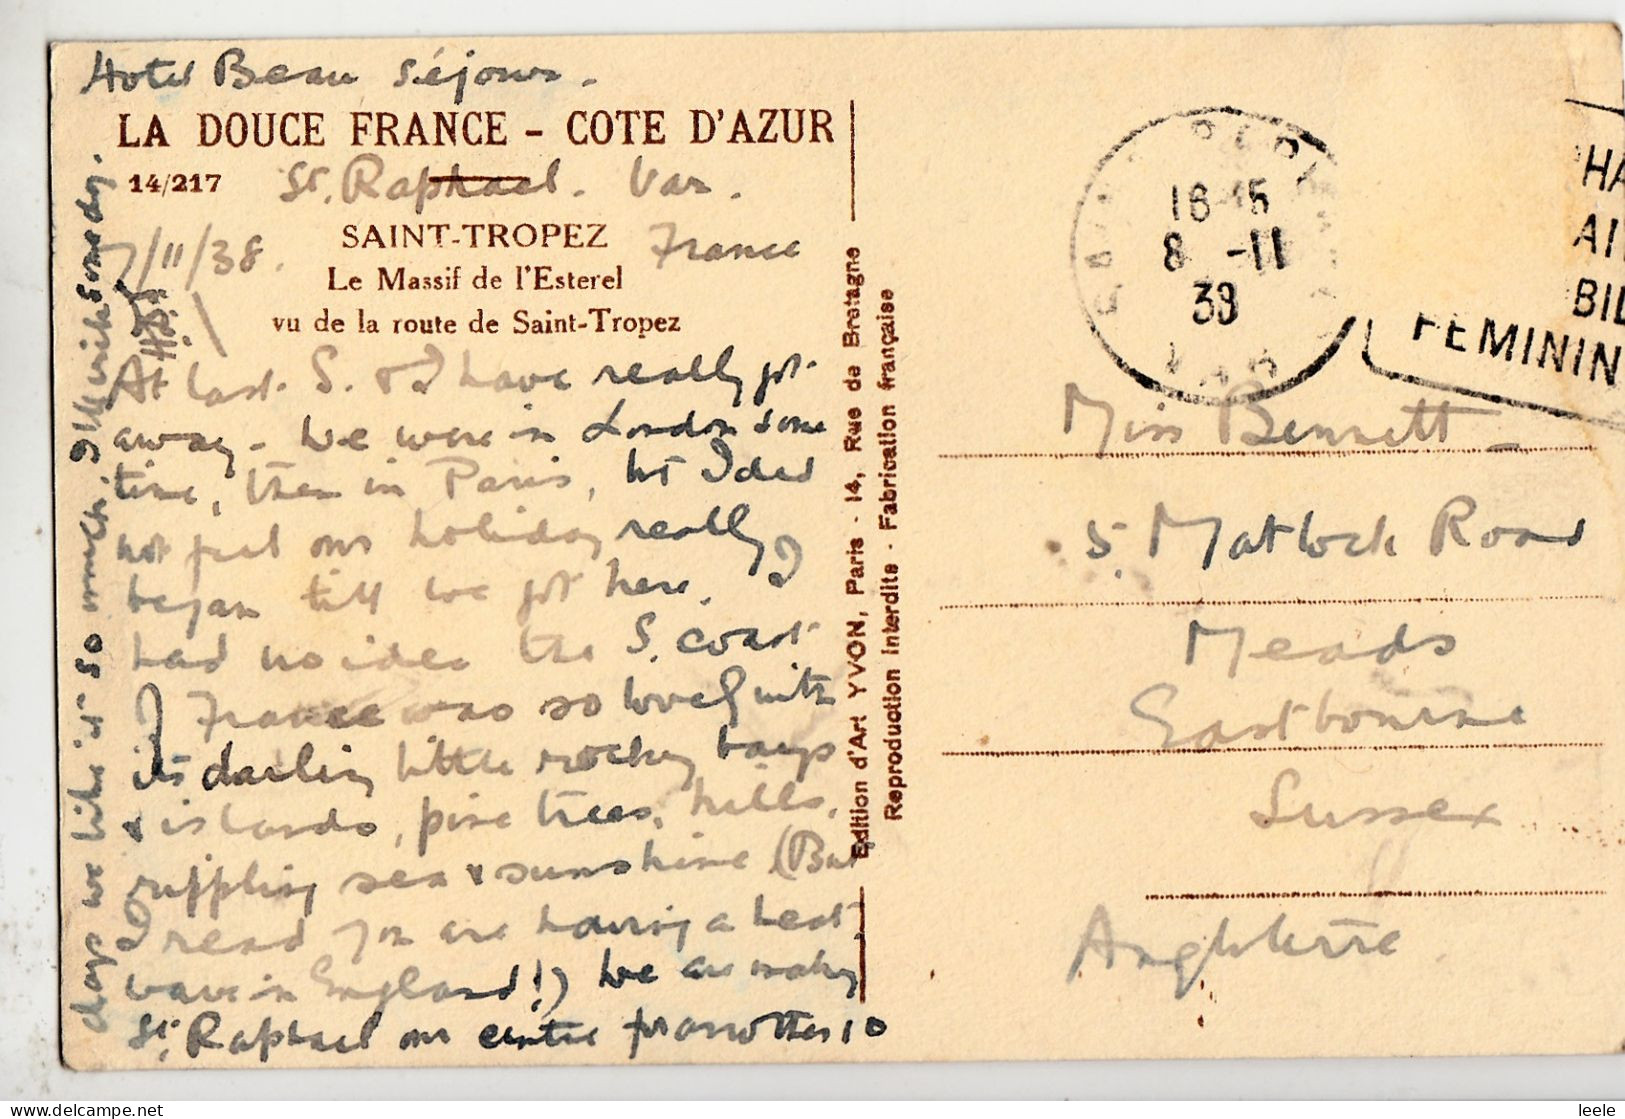 Hotel Beau Séjour.
LA DOUCE FRANCE - COTE D'AZUR
14/217
St. Raphael. Var.
SAINT-TROPEZ
France
7/11/38.
Le Massif de l'Esterel
vu de la route de Saint-Tropez
At last S. & I have really got
away - We were in London some
time, then in Paris, but I did
not feel our holiday really
began till we got here. I
had no idea the S. coast
of France was so lovely with
its darling little rocky bays
& islands, pine trees, hills,
rippling sea & sunshine (But
I read you are having a heat
wave in England!) We are making
St. Raphael our centre for another 10
days we like it so much. I'll write some day.
Edition d'Art YVON, Paris - 14, Rue de Bretagne
Reproduction Interdite - Fabrication française
18 45
8 -11
38
HA
AI
BI
FEMININ
Miss Bennett
5. Matlock Road
Meads
Eastbourne
Sussex
Angleterre.
leele